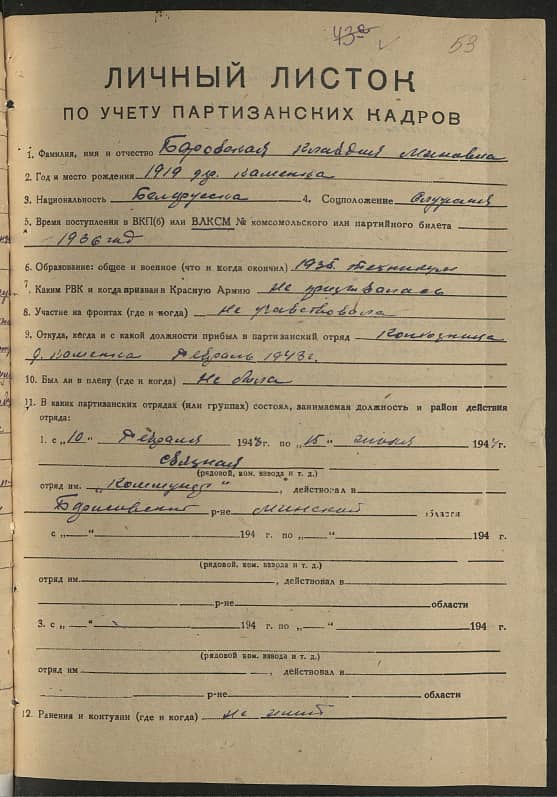 53
ЛИЧНЫЙ ЛИСТОК
ПО УЧЕТУ ПАРТИЗАНСКИХ КАДРОВ
1. Фамилия, имя и отчество Клавдия
2. Год и место рождения 1919 д. Каменка
3. Национальность Белорусска 4. Соцположение Служащая
5. Время поступления в ВКП(б) или ВЛКСМ № комсомольского или партийного билета
1936 год
6. Образование: общее и военное (что и когда окончил) 1936. техникум
7. Каким РВК и когда призван в Красную Армию Не призывалась
8. Участие на фронтах (где и когда) Не участвовала
9. Откуда, когда и с какой должности прибыл в партизанский отряд Колхозница
д. Каменка Февраль 1943 г.
10. Был ли в плену (где и когда) Не была
11. В каких партизанских отрядах (или группах) состоял, занимаемая должность и район действия
отряда:
1. с „10“ Февраля 1943 г. по „15“ 1944 г.
связная
(рядовой, ком. взвода и т. д.)
отряд им. „Коммунар“, действовал в
Борисовский р-не Минской области
с „—“ 194 г. по „—“ 194 г.
(рядовой, ком. взвода и т. д.)
отряд им. , действовал в
р-не области
3. с „—“ 194 г. по „—“ 194 г.
(рядовой, ком. взвода и т. д.)
отряд им , действовал в
р-не области
12. Ранения и контузии (где и когда) Не имеет